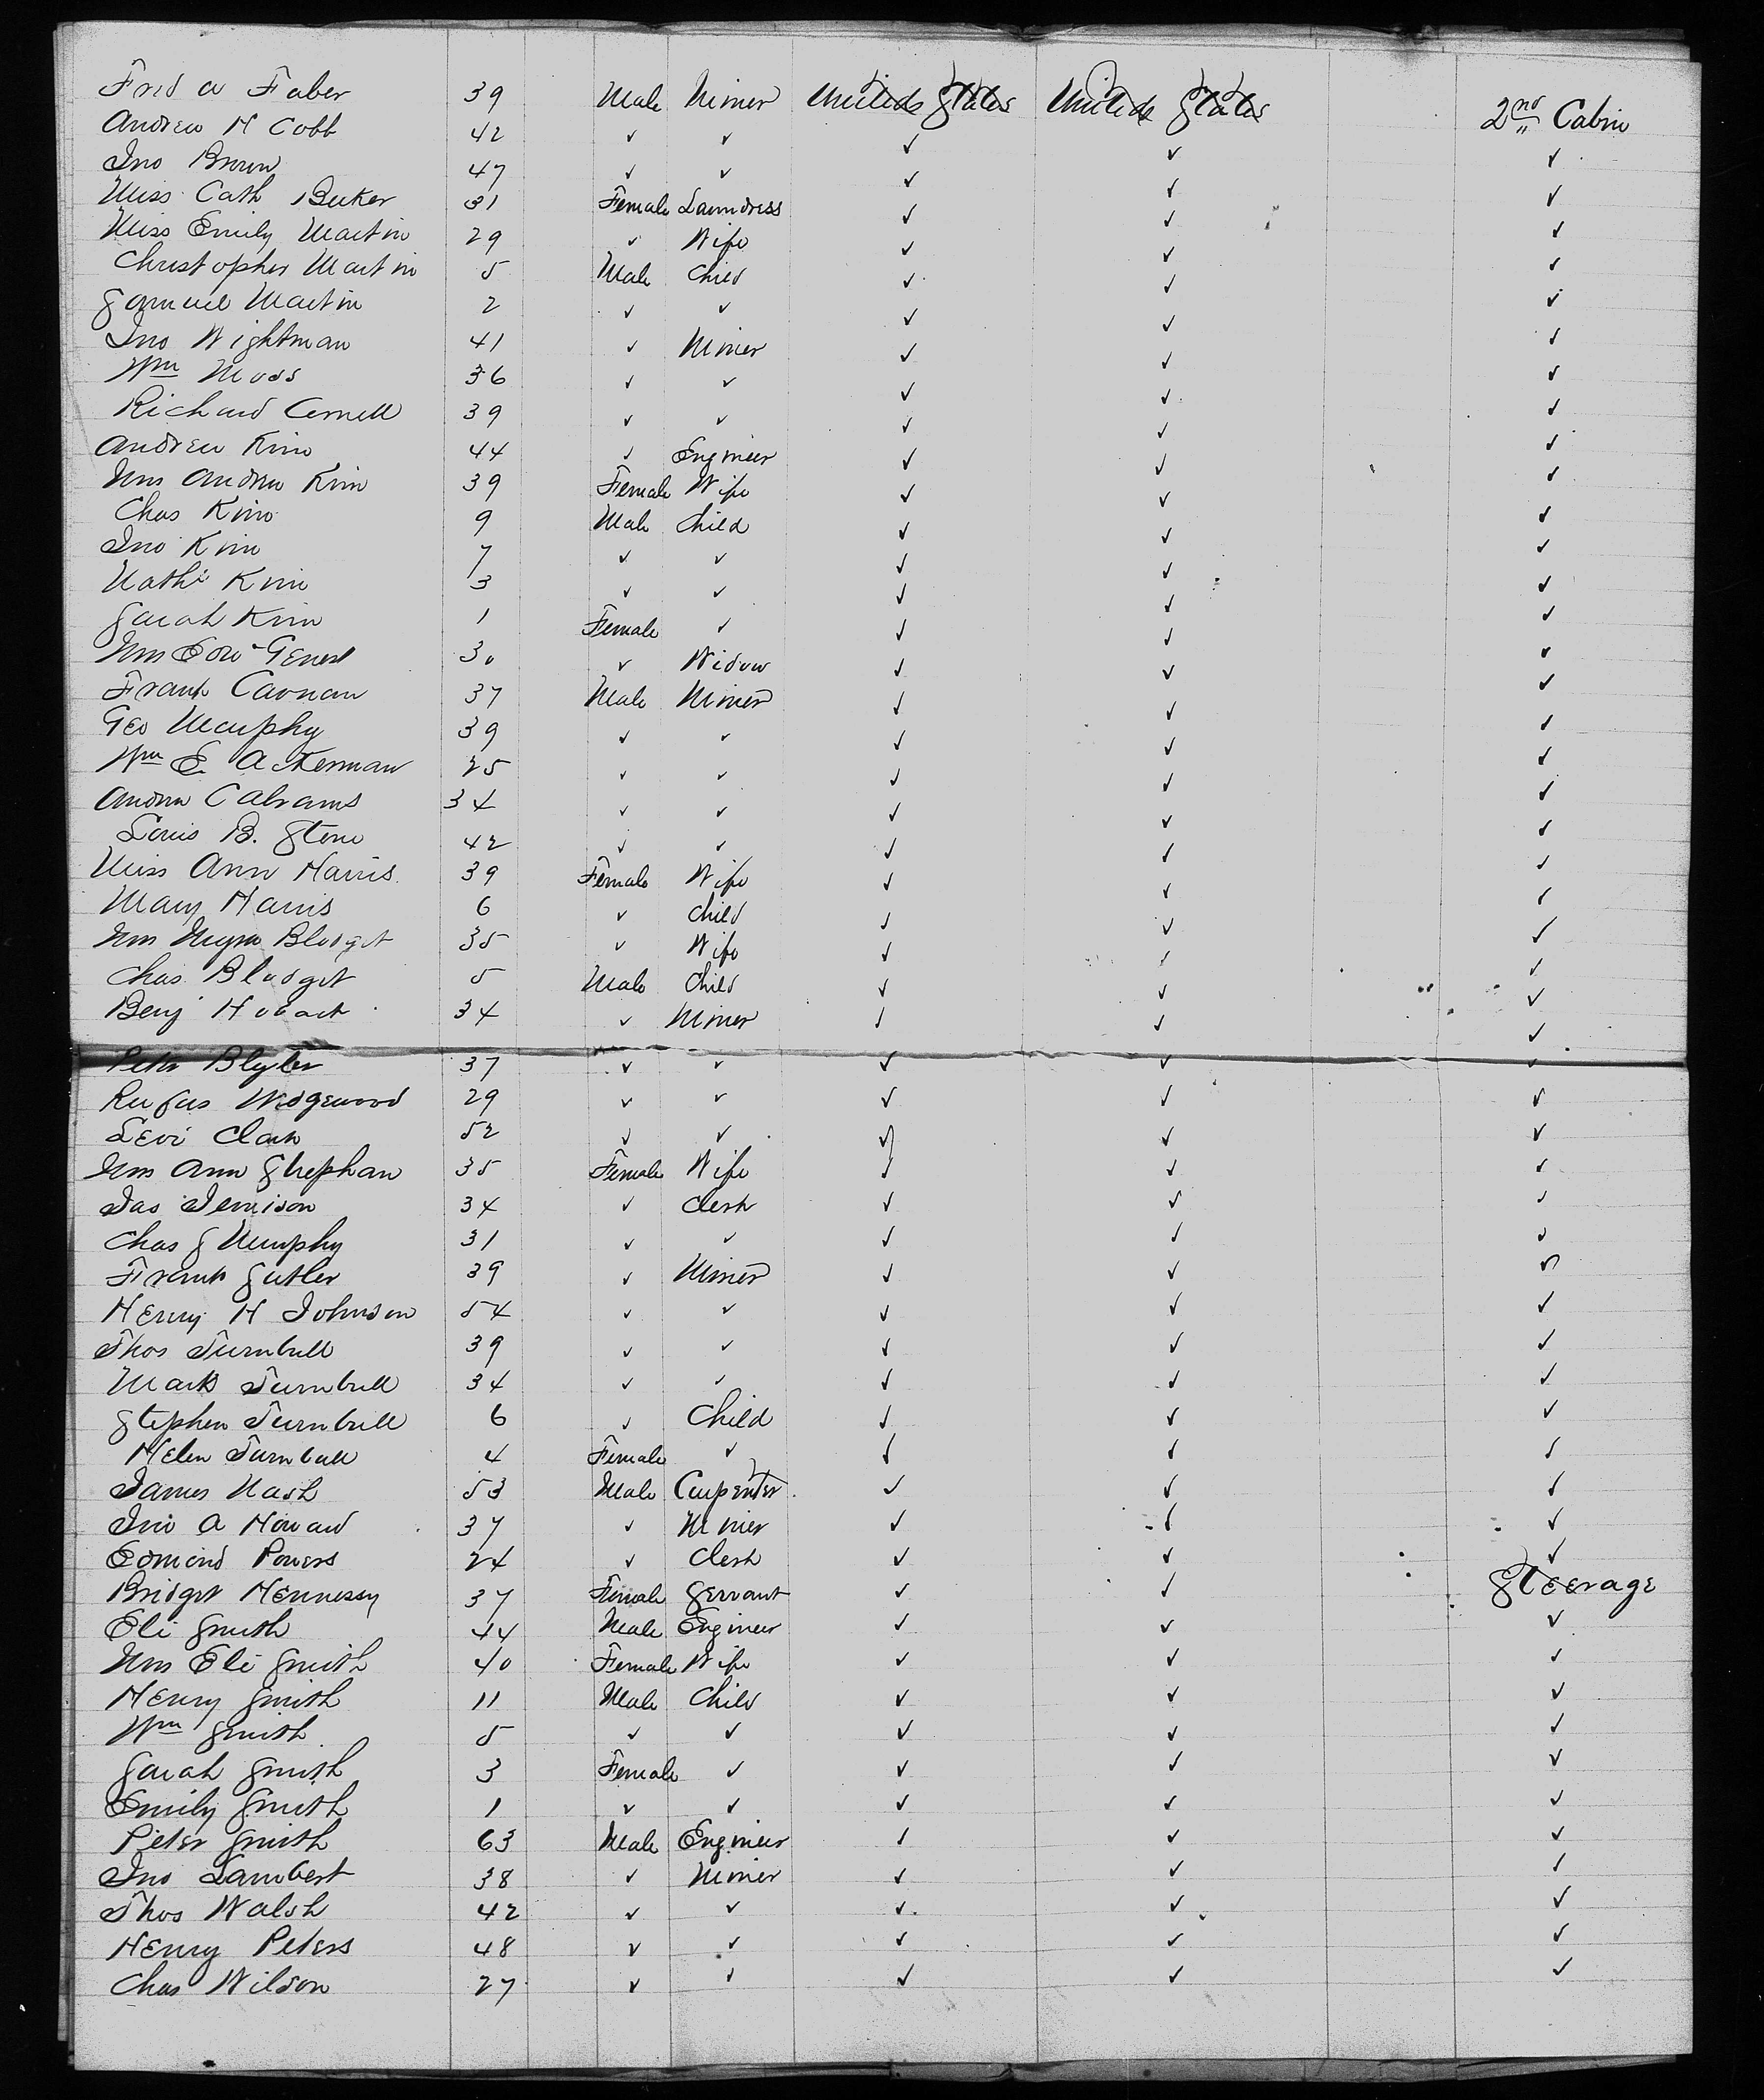 Fred A Faber 39 Male Miner United States United States 2nd Cabin
Andrew H Cobb 42 ✓ ✓ ✓ ✓ ✓
Jno Brown 47 ✓ ✓ ✓ ✓ ✓
Miss Cath Beeker 31 Female Laundress ✓ ✓ ✓
Miss Emily Martin 29 ✓ Wife ✓ ✓ ✓
Christopher Martin 5 Male Child ✓ ✓ ✓
Samuel Martin 2 ✓ ✓ ✓ ✓ ✓
Jno Wightman 41 ✓ Miner ✓ ✓ ✓
Wm Moss 36 ✓ ✓ ✓ ✓ ✓
Richard Cornell 39 ✓ ✓ ✓ ✓ ✓
Andrew Kim 44 ✓ Engineer ✓ ✓ ✓
Mrs Andrew Kim 39 Female Wife ✓ ✓ ✓
Chas Kim 9 Male Child ✓ ✓ ✓
Jno Kim 7 ✓ ✓ ✓ ✓ ✓
Nathl Kim 3 ✓ ✓ ✓ ✓ ✓
Sarah Kim 1 Female ✓ ✓ ✓ ✓
Mrs Edw Genest 30 ✓ Widow ✓ ✓ ✓
Frank 37 Male Miner ✓ ✓ ✓
Geo Murphy 39 ✓ ✓ ✓ ✓ ✓
Wm E Ackerman 25 ✓ ✓ ✓ ✓ ✓
Andrew C Abrams 34 ✓ ✓ ✓ ✓ ✓
Louis B. Stone 42 ✓ ✓ ✓ ✓ ✓
Miss Ann Harris 39 Female Wife ✓ ✓ ✓
Mary Harris 6 ✓ Child ✓ ✓ ✓
Mrs Myra Blodget 35 ✓ Wife ✓ ✓ ✓
Chas Blodget 5 Male Child ✓ ✓ ✓
Benj Hobart 34 ✓ Miner ✓ ✓ ✓
Peter Blyler 37 ✓ ✓ ✓ ✓ ✓
Rufus Wedgewood 29 ✓ ✓ ✓ ✓ ✓
Levi Clark 52 ✓ ✓ ✓ ✓ ✓
Mrs Ann Strephan 35 Female Wife ✓ ✓ ✓
Jas Jemison 34 ✓ Clerk ✓ ✓ ✓
Chas S Murphy 31 ✓ ✓ ✓ ✓ ✓
Frank Sutler 39 ✓ Miner ✓ ✓ ✓
Henry H Johnson 54 ✓ ✓ ✓ ✓ ✓
Thos Turnbull 39 ✓ ✓ ✓ ✓ ✓
Mark Turnbull 34 ✓ ✓ ✓ ✓ ✓
Stephen Turnbull 6 ✓ Child ✓ ✓ ✓
Helen Turnbull 4 Female ✓ ✓ ✓ ✓
James Nash 53 Male Carpenter ✓ ✓ ✓
Jno A Howard 37 ✓ Miner ✓ ✓ ✓
Edmond Powers 24 ✓ Clerk ✓ ✓ ✓
Bridget Hennessy 37 Female Servant ✓ ✓ Steerage
Eli Smith 44 Male Engineer ✓ ✓ ✓
Mrs Eli Smith 40 Female Wife ✓ ✓ ✓
Henry Smith 11 Male Child ✓ ✓ ✓
Wm Smith 5 ✓ ✓ ✓ ✓ ✓
Sarah Smith 3 Female ✓ ✓ ✓ ✓
Emily Smith 1 ✓ ✓ ✓ ✓ ✓
Peter Smith 63 Male Engineer ✓ ✓ ✓
Jno Lambert 38 ✓ Miner ✓ ✓ ✓
Thos Walsh 42 ✓ ✓ ✓ ✓ ✓
Henry Peters 48 ✓ ✓ ✓ ✓ ✓
Chas Wilson 27 ✓ ✓ ✓ ✓ ✓